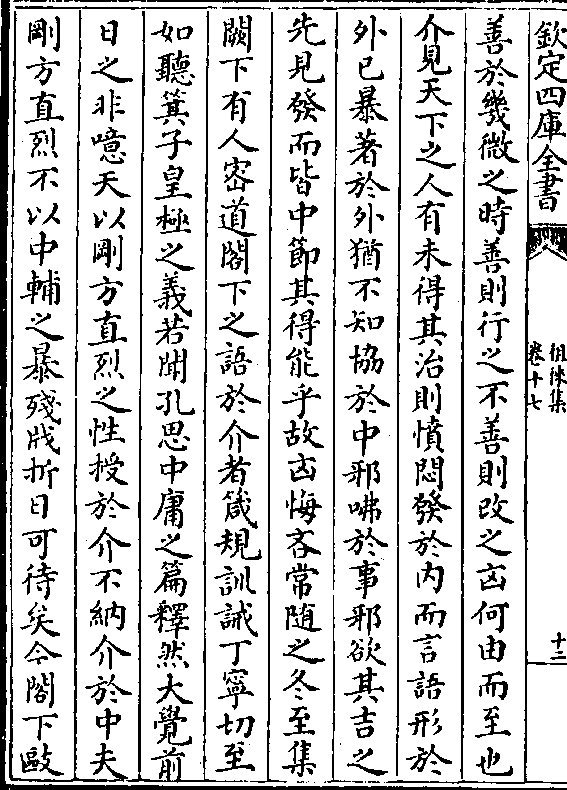 欽定四庫全書
徂徠集
卷十七
十二
善於幾微之時善則行之不善則改之凶何由而至也
介見天下之人有未得其治則憤悶發於内而言語形於
外已暴著於外猶不知協於中邪咈於事邪欲其吉之
先見發而皆中節其得能乎故凶悔吝常随之冬至集
闕下有人密道閣下之語於介者箴規訓誡丁寧切至
如聽箕子皇極之義若開孔思中庸之篇釋然大覺前
日之非噫天以剛方直烈之性授於介不納介於中夫
剛方直烈不以中輔之暴殘戕折日可待矣今閣下敺